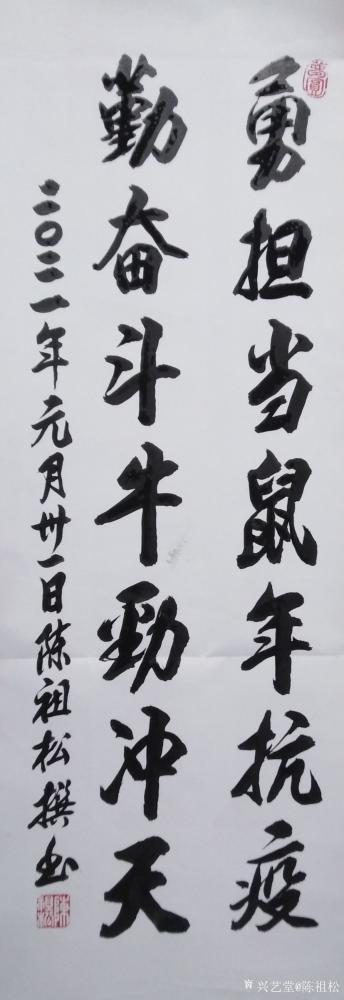 勇担当鼠年抗疫
勤奋斗牛勁冲天
二〇二一年元月卅一日陈祖松撰书
兴艺堂@陈祖松